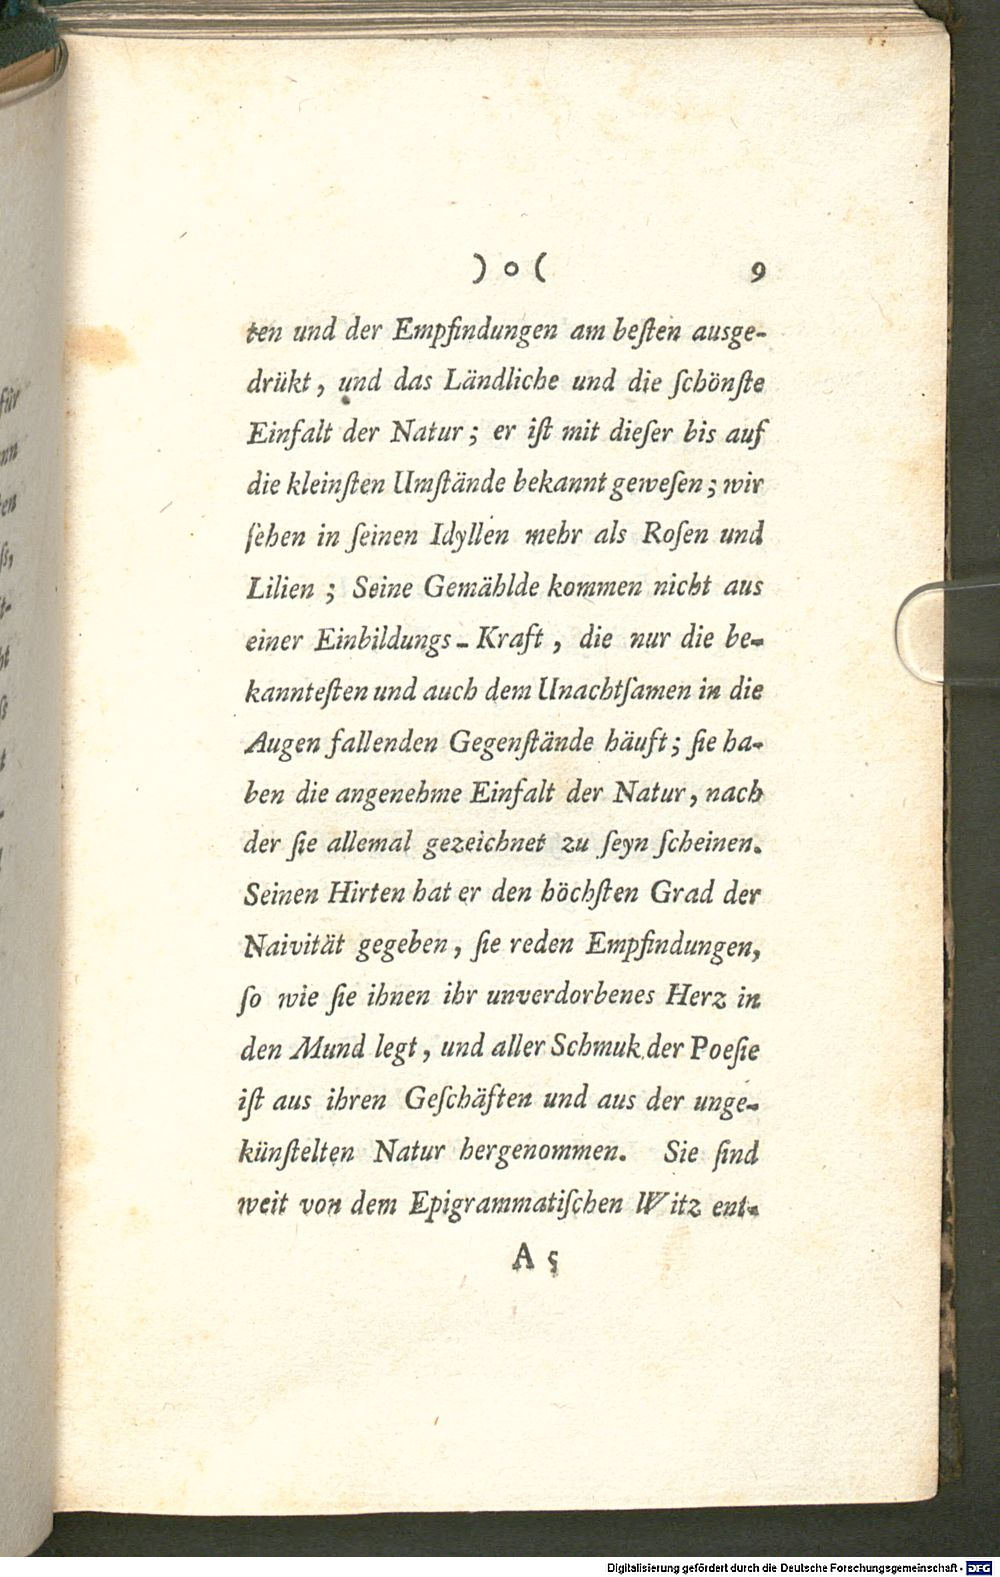 ) o ( 9
ten und der Empfindungen am beſten ausge-
drükt, und das Ländliche und die ſchönſte
Einfalt der Natur; er iſt mit dieſer bis auf
die kleinſten Umſtände bekannt geweſen; wir
ſehen in ſeinen Idyllen mehr als Roſen und
Lilien; Seine Gemählde kommen nicht aus
einer Einbildungs-Kraft, die nur die be-
kannteſten und auch dem Unachtſamen in die
Augen fallenden Gegenſtände häuft; ſie ha-
ben die angenehme Einfalt der Natur, nach
der ſie allemal gezeichnet zu ſeyn ſcheinen.
Seinen Hirten hat er den höchſten Grad der
Naivität gegeben, ſie reden Empfindungen,
ſo wie ſie ihnen ihr unverdorbenes Herz in
den Mund legt, und aller Schmuk der Poeſie
iſt aus ihren Geſchäften und aus der unge-
künſtelten Natur hergenommen. Sie ſind
weit von dem Epigrammatiſchen Witz ent-
A 5
für
nn
ten
ſs,
t-
ht
t
Digitalisierung gefördert durch die Deutsche Forschungsgemeinschaft - DFG